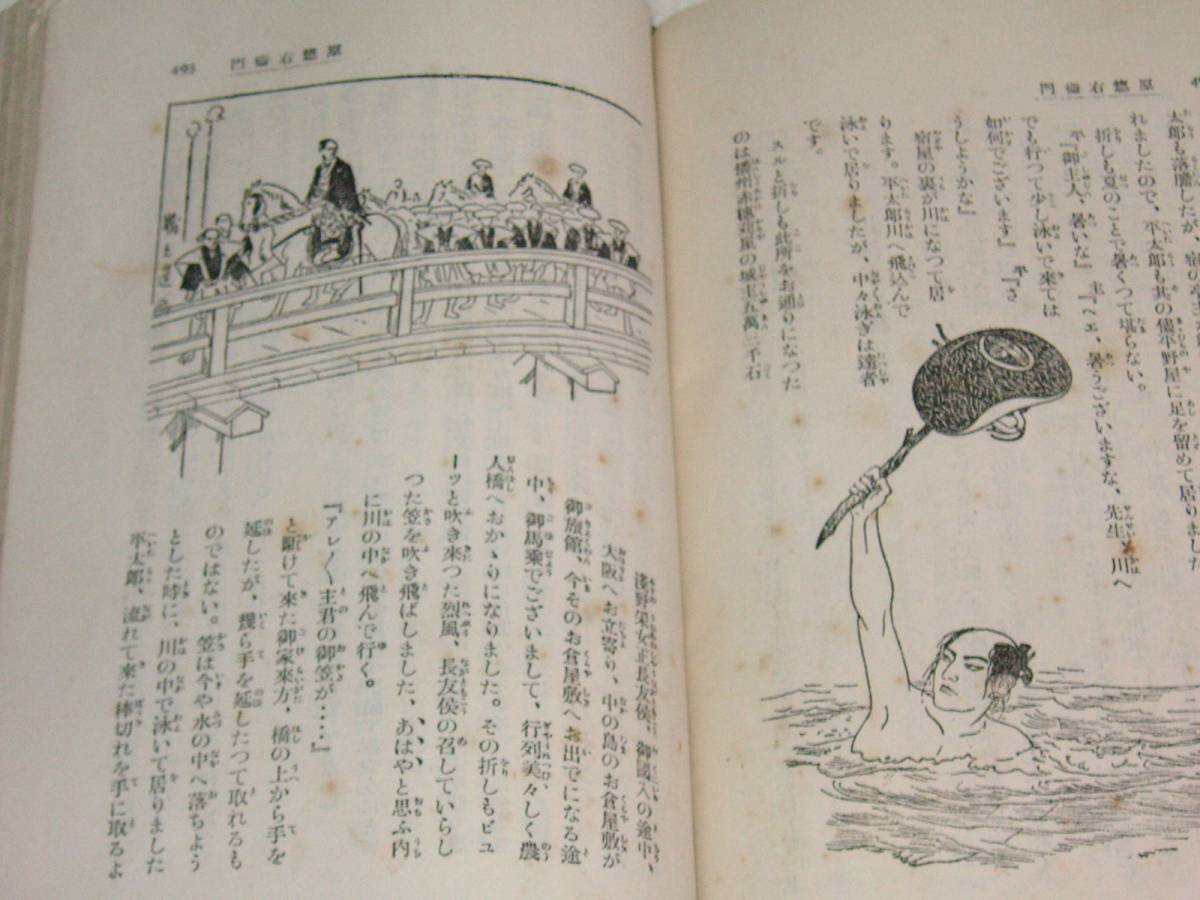 原惣右衛門
太郎も落膽したが、宿の
れましたので、平太郎も其の儘平野屋に足を留めて居りました
折しも夏のことで暑くつて堪らない。
平『御主人、暑いな』 主『ヘエ、暑うございますな、先生、川へ
でも行つて少し泳いで來ては
如何でございます』 平『さ
うしようかな』
宿屋の裏が川になつて居
ります。平太郎川へ飛込んで
泳いで居りましたが、中々泳ぎは達者
です。
スルと折しも此所をお通りになつた
のは播州赤穂苅屋の城主五萬三千石
原惣右衛門
493
淺野采女正長友侯、御國入の途中、
大阪へお立寄り、中の島のお倉屋敷が
御旅館、今そのお倉屋敷へお出でになる途
中、御馬乘でございまして、行列美々しく農
人橋へおかゝりになりました。その折しもピュ
ーッと吹き來つた烈風、長友侯の召していらし
つた笠を吹き飛ばしました、あはやと思ふ内
に川の中へ飛んで行く。
『アレ〱主君の御笠が‥‥』
と驅けて來た御家來方、橋の上から手を
延したが、幾ら手を延したつて取れるも
のではない。笠は今や水の中へ落ちよう
とした時に、川の中で泳いで居りました
平太郎、流れて來た棒切れを手に取るよ